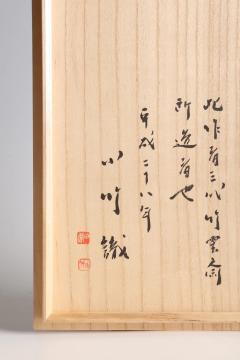 此作者三代竹雲斎
所造者也
平成二十八年
小竹識